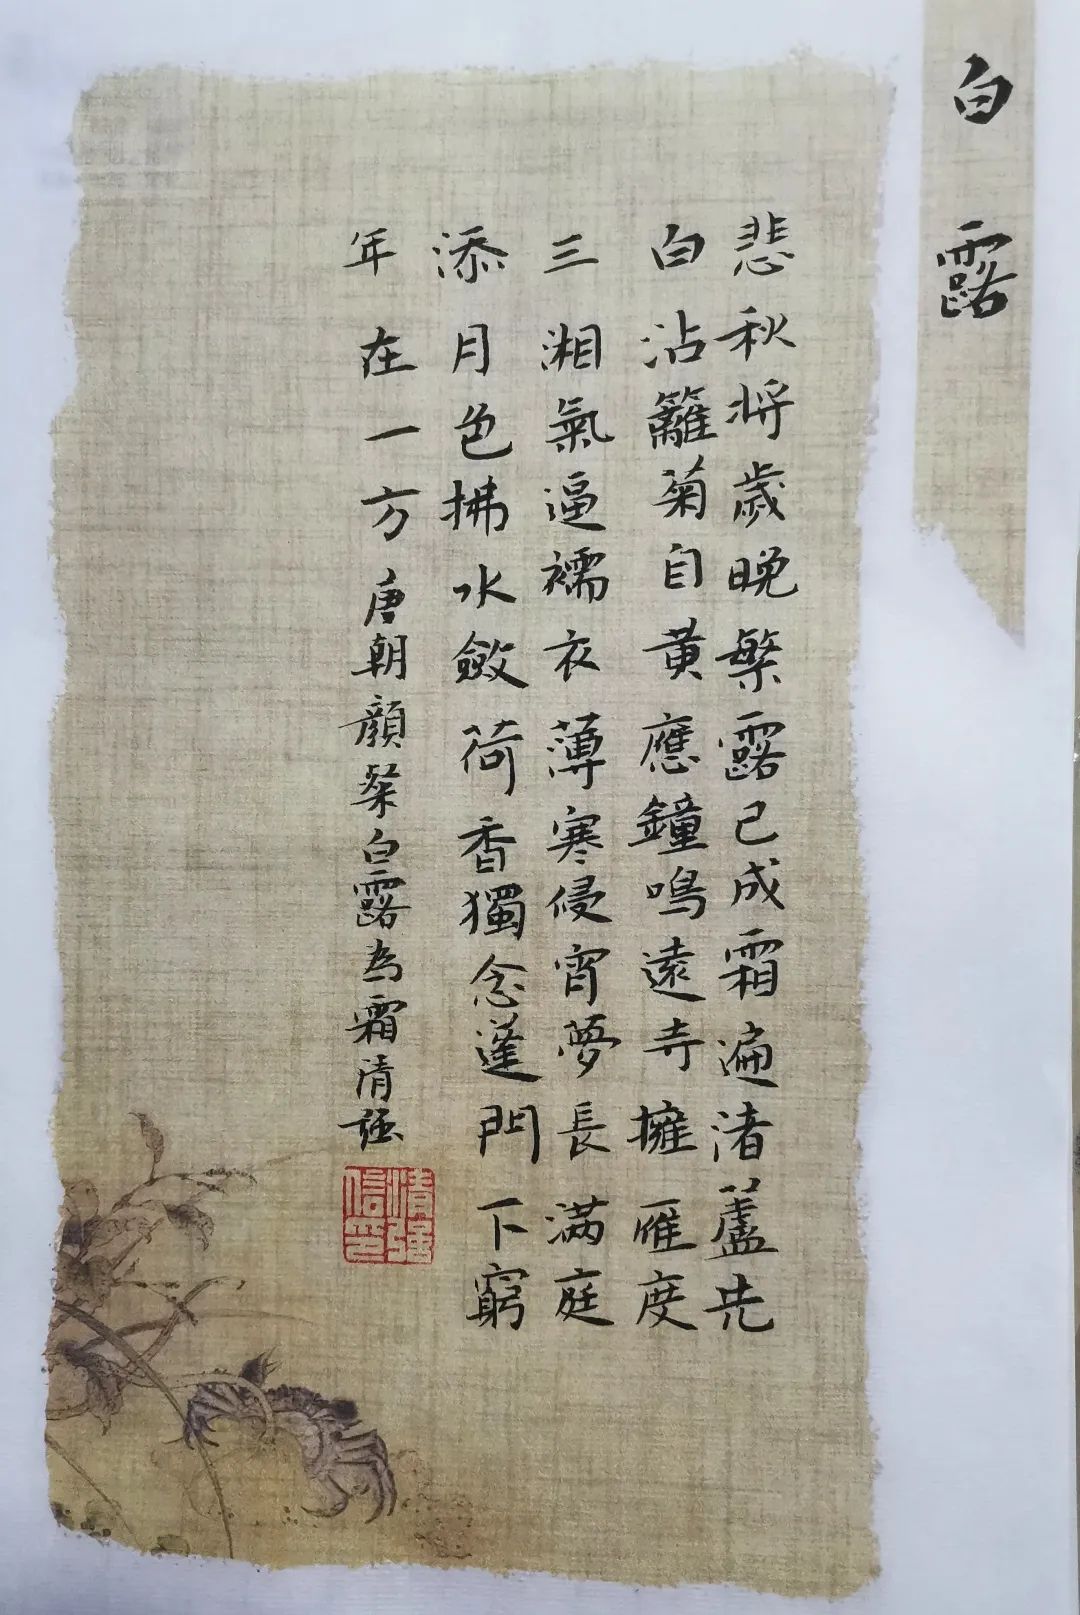 白露
悲秋将歲晚繁露已成霜遍渚蘆先
白沾籬菊自黄應鐘鳴遠寺擁雁度
三湘氣逼襦衣薄寒侵宵夢長满庭
添月色拂水斂荷香獨念蓬門下窮
年在一方唐朝顏粲白露為霜清强
清强信印